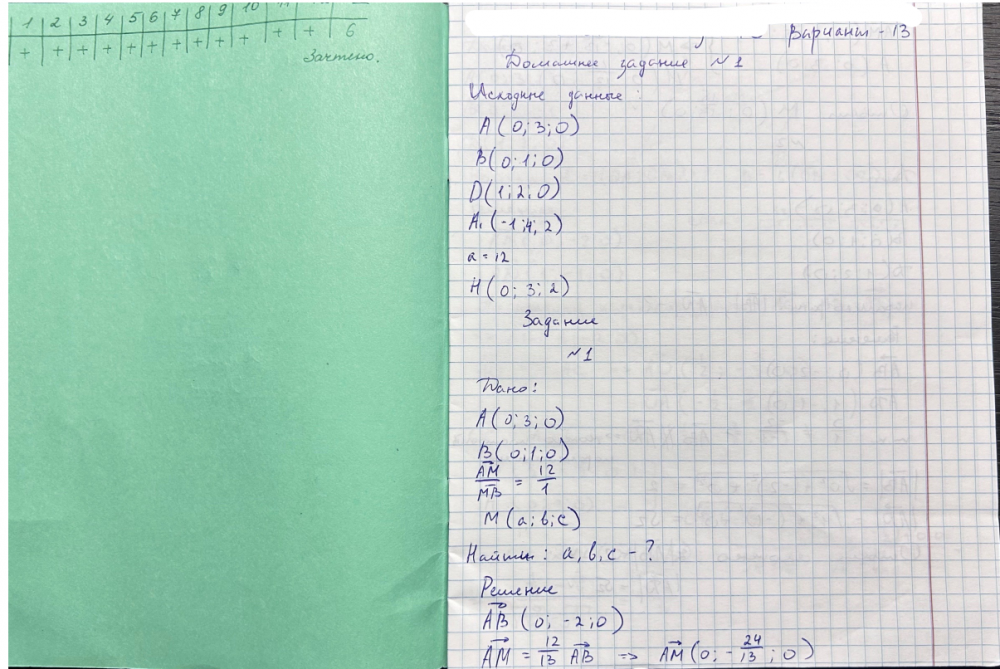 1 2 3 4 5 6 7 8 9 10
+ + + + + + + + + + + + 6
Зачтено.
Вариант - 13
Домашнее задание №1
Исходные данные:
A(0; 3; 0)
B(0; 1; 0)
D(1; 2; 0)
A₁(-1; 4; 2)
a = 12
H(0; 3; 2)
Задание
№1
Дано:
A(0; 3; 0)
B(0; 1; 0)
AM/MB = 12/1
M(a; b; c)
Найти: a, b, c - ?
Решение
AB (0; -2; 0)
AM = 12/13 AB => AM (0; -24/13; 0)